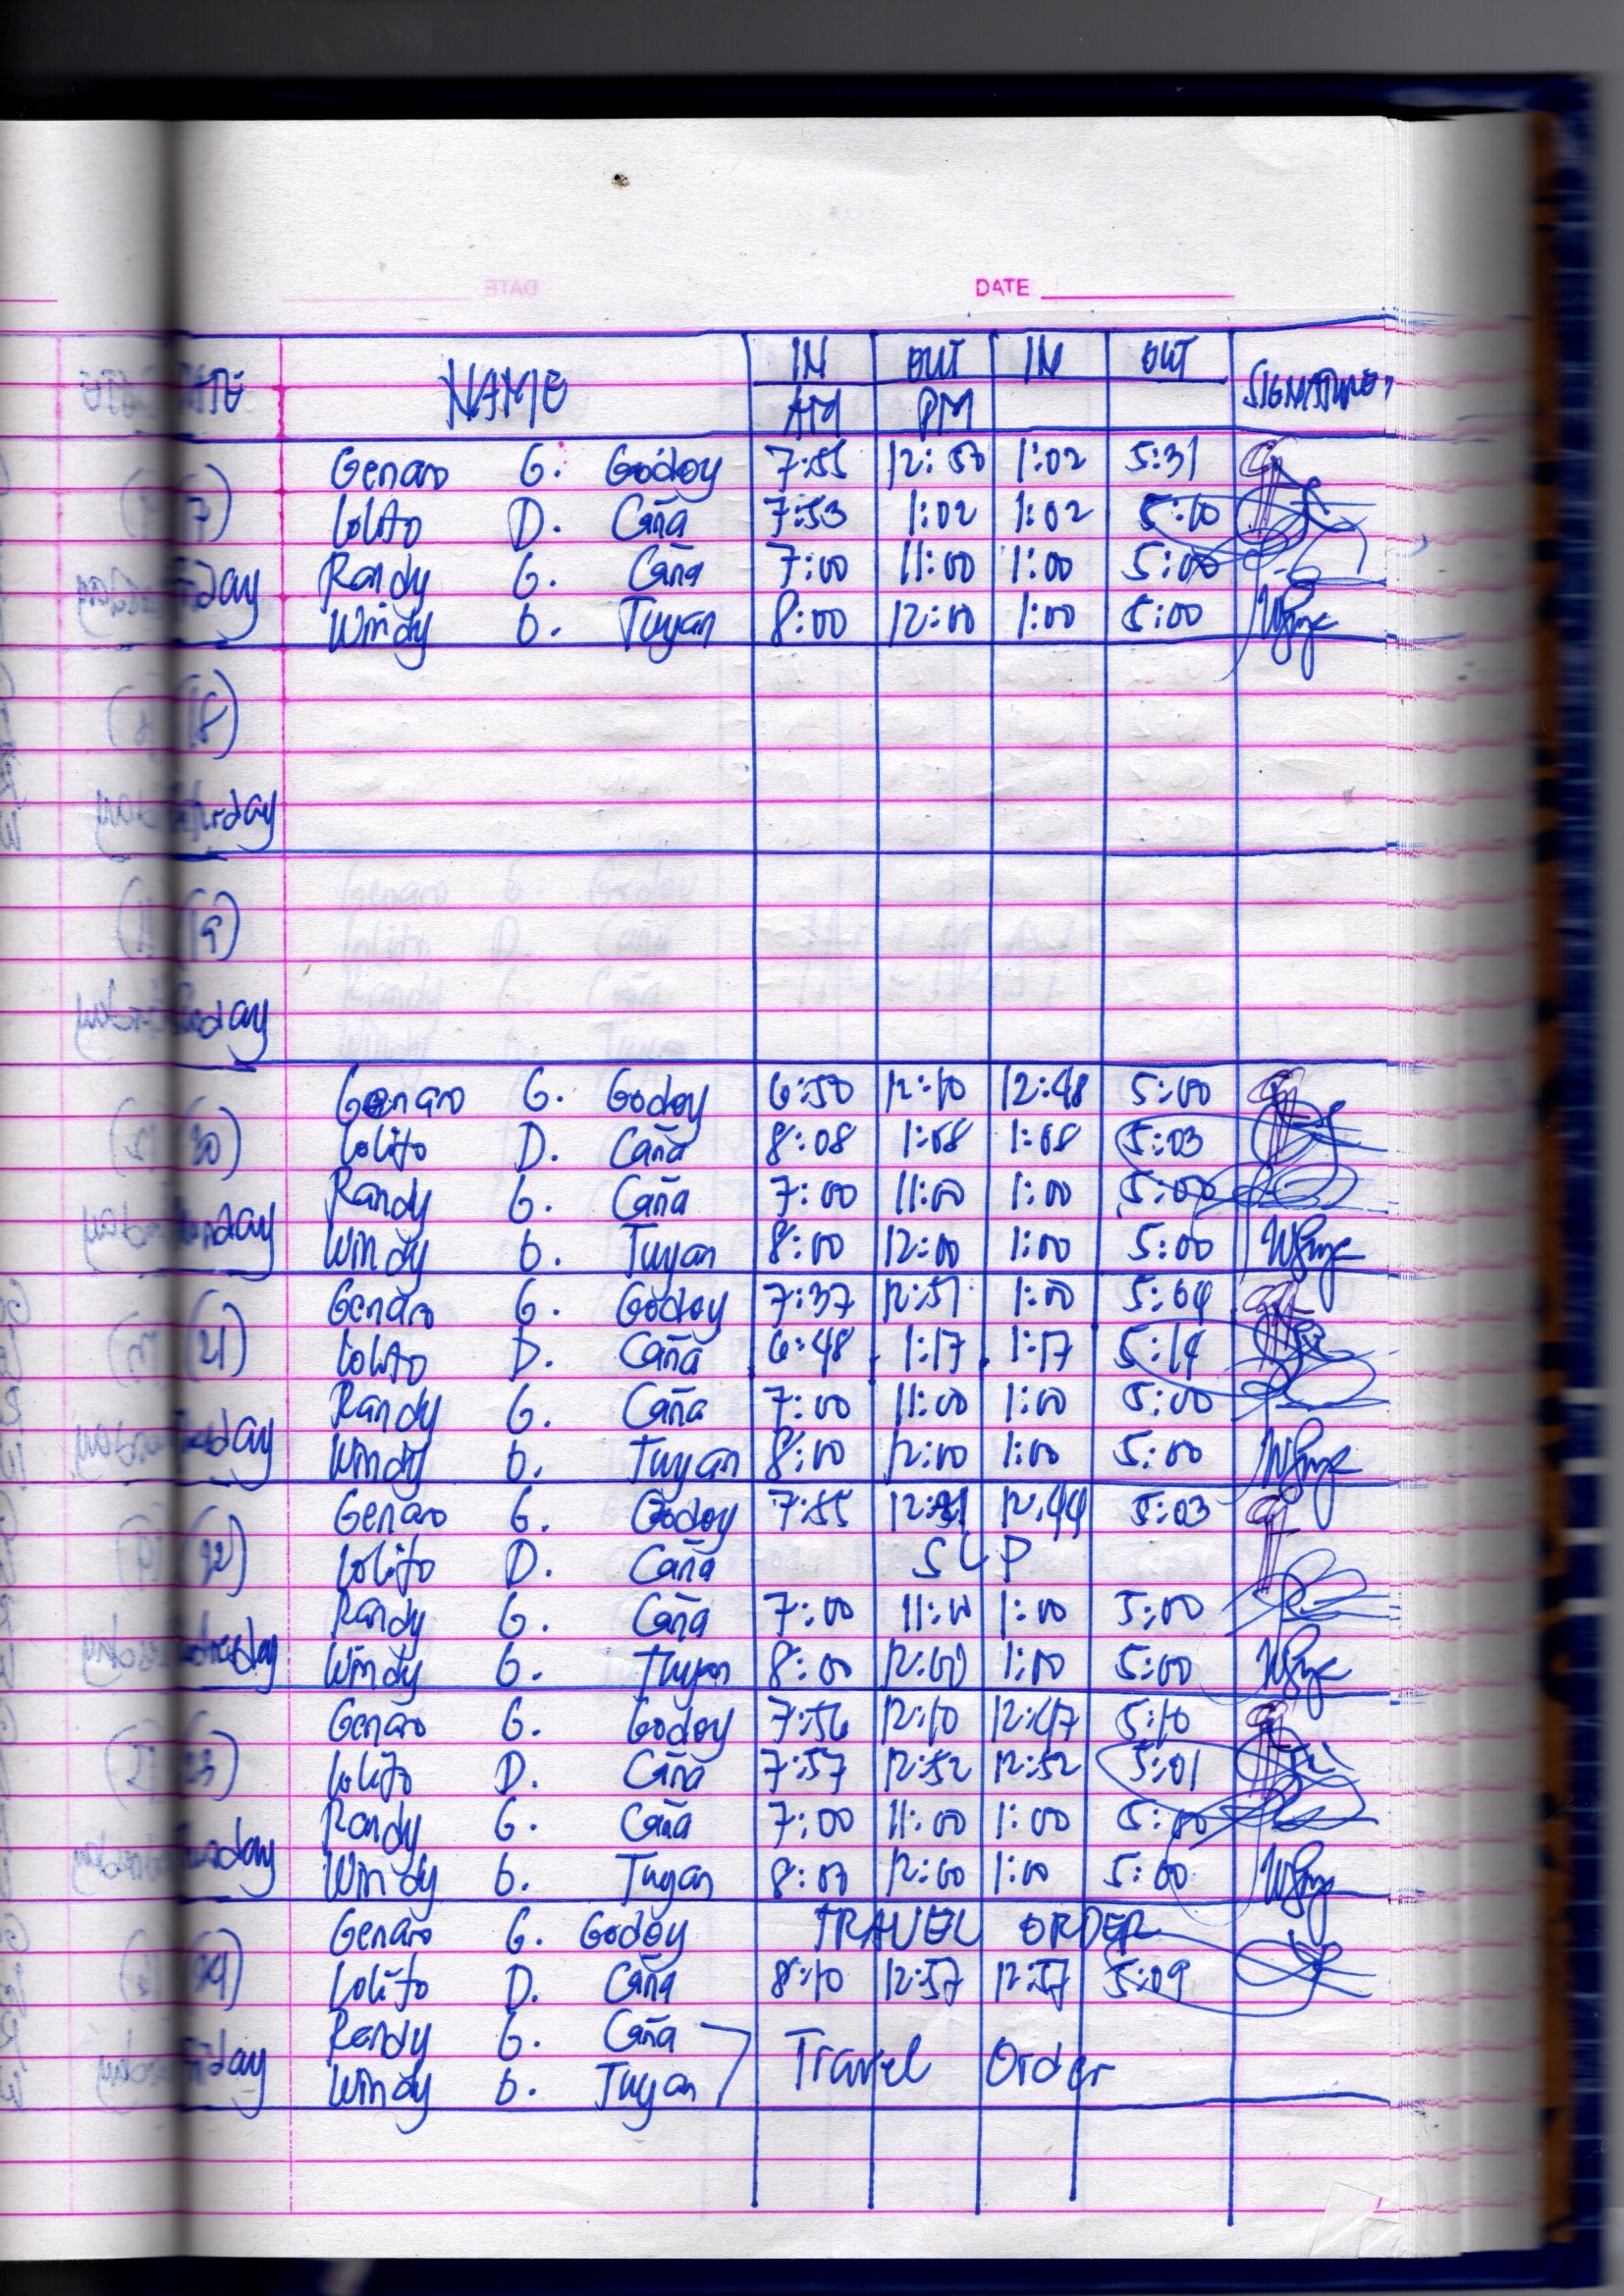 DATE
NAME IN OUT IN OUT SIGNATURE
AM PM
Genaro G. Godoy 7:55 12:50 1:02 5:31
(17) Lolito D. Caña 7:53 1:02 1:02 5:10
day Randy G. Caña 7:00 11:00 1:00 5:00
Windy O. Tuyan 8:00 12:00 1:00 5:00
(18)
rday
(19)
day
Genaro G. Godoy 6:50 12:10 12:48 5:00
(20) Lolito D. Caña 8:08 1:08 1:08 5:03
Randy G. Caña 7:00 11:00 1:00 5:00
nday Windy O. Tuyan 8:00 12:00 1:00 5:00
Genaro G. Godoy 7:37 12:51 1:00 5:04
(21) Lolito D. Caña 6:48 1:17 1:17 5:14
Randy G. Caña 7:00 11:00 1:00 5:00
day Windy O. Tuyan 8:00 12:00 1:00 5:00
Genaro G. Godoy 7:55 12:44 5:03
(22) Lolito D. Caña SLP
Randy G. Caña 7:00 11:00 1:00 5:00
Windy G. Tuyan 8:00 12:00 1:00 5:00
Genaro G. Godoy 7:56 12:10 12:47 5:10
23) Lolito D. Caña 7:57 12:52 12:52 5:01
Randy G. Caña 7:00 11:00 1:00 5:00
day Windy O. Tuyan 8:00 12:00 1:00 5:00
Genaro G. Godoy TRAVEL ORDER
24) Lolito D. Caña 8:10 12:57 12:57 5:09
Randy G. Caña
day Windy O. Tuyan Travel Order